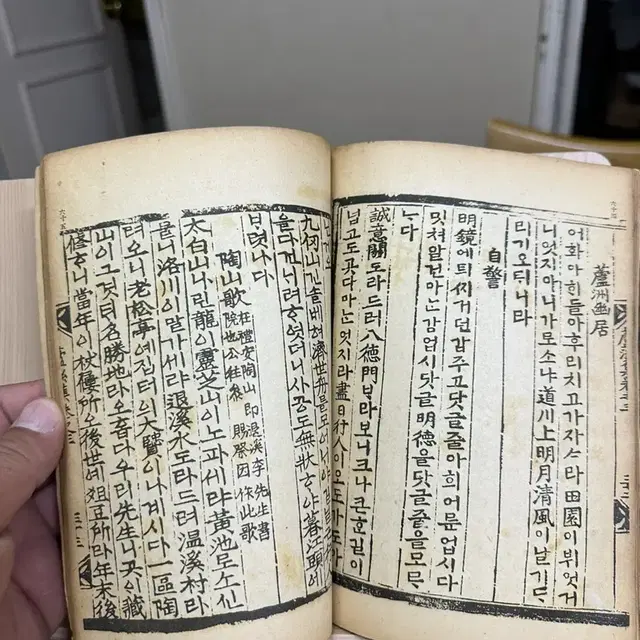 蘆洲幽居
어화아희들아후리치고가쟈스라田園이뷔엿거
니엇지아니가로소냐道川上明月淸風이날기드
리기오뒤니라
自警
明鏡에틔씨거던갑주고닷글줄아희어문업시다
밋쳐알건만ᄂᆞᆫ갑업시닷글明德을닷글줄을모로
ᄂᆞ다
誠意關도라드러八德門ᄇᆞ라보니크나큰ᄒᆞᆫ길이
넙고도곳다마ᄂᆞᆫ엇지라盡日行人이오도가도
九仞山긴솔베혀濟世舟ᄅᆞᆯ
을다건ᄂᆡ려ᄒᆞ엿더니사공도無狀ᄒᆞ야暮江頭에
ᄇᆞ렷ᄂᆞ다
陶山歌 在禮安陶山即退溪李先生書院也公往參賜祭因作此歌
太白山ᄂᆞ린龍이靈芝山이노파셰라黃池로소신
믈니洛川이말가셰라退溪水도라드려溫溪村라
려오니老松亭예집터의大賢이나계시다一區陶
山이그텨名勝地라오홉다우리先生니곳이藏
修ᄒᆞ니當年이杖屨所오後世에俎豆所라年末後